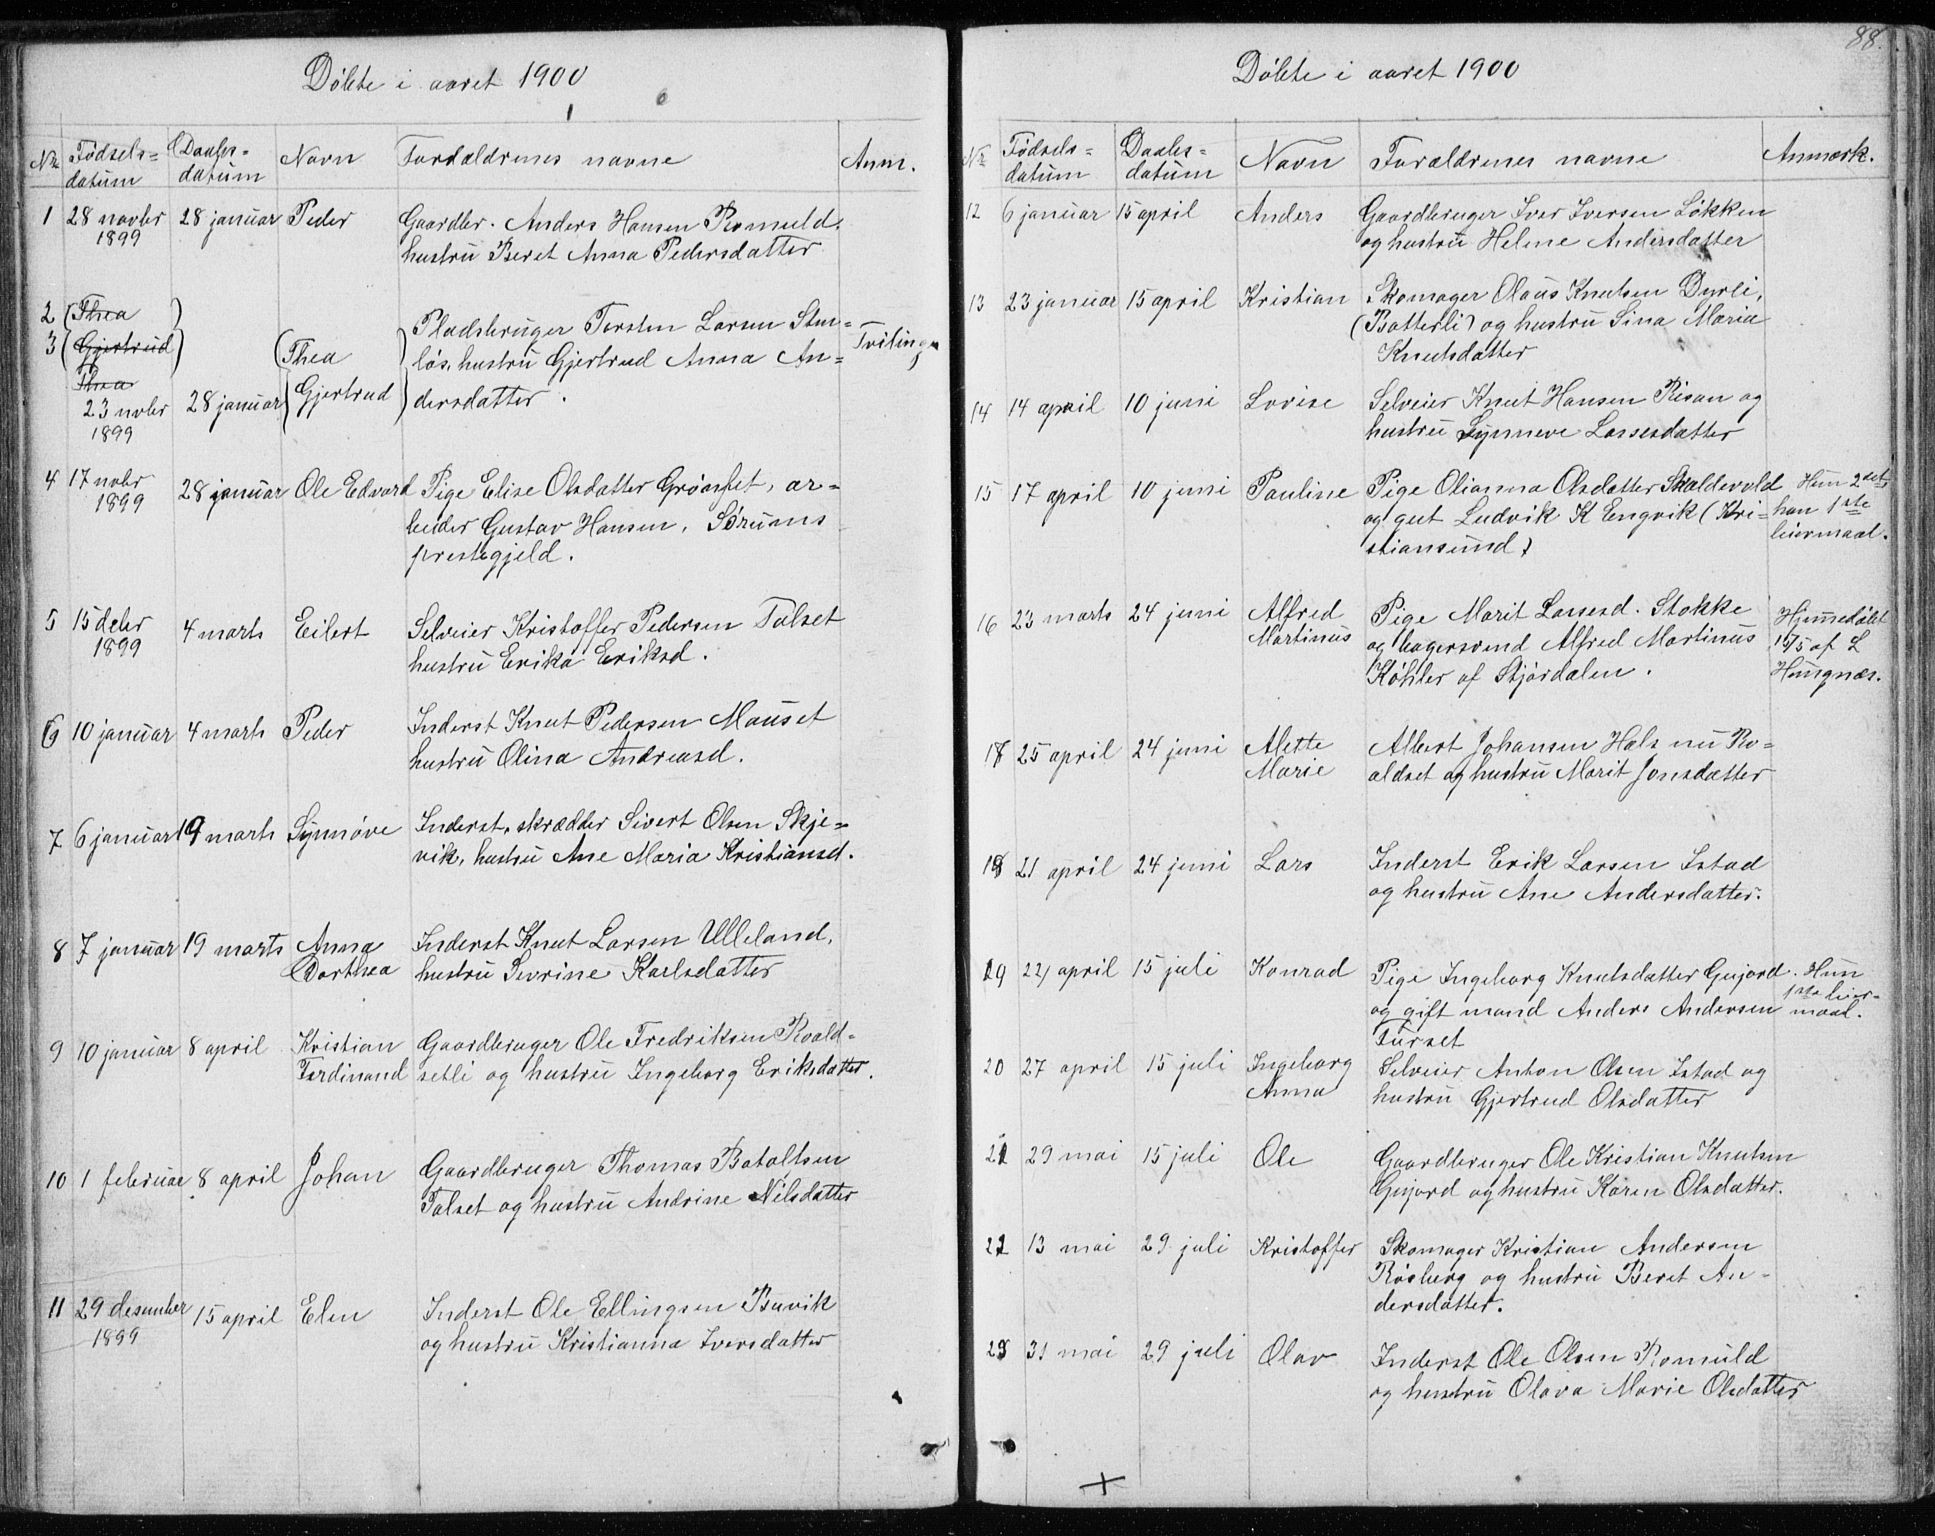 Døbte i aaret 1900
No Fødsels= Daabs= Navn Forældrenes navne Anm.
datum datum
1 28 novbr 28 januar Peder Gaardbr. Anders Hansen Romuld,
1899 hustru Beret Anna Pedersdatter
2 (Thea)
3 (Gjertrud) (Thea Pladsbruger Torsten Larsen Stur= Tvilinger
Thea Gjertrud) løs, hustru Gjertrud Anna An=
23 nobr 28 januar dersdatter.
1899
4 17 nobr 28 januar Ole Edvard Pige Elise Olsdatter Grønset, ar=
1899 beider Gustav Hansen, Sørums
prestegjeld.
5 15 debr 4 marts Eilert Selveier Kristoffer Pedersen Talset
1899 hustru Erika Eriksd.
6 10 januar 4 marts Peder Inderst Knut Pedersen Mauset
hustru Olina Andreasd.
7 6 januar 19 marts Synnøve Inderst, skrædder Sivert Olsen Skje=
vik, hustru Ane Maria Kristiansd.
8 7 januar 19 marts Anna Inderst Knut Larsen Ulleland,
Dorthea hustru Sevrine Karlsdatter
9 10 januar 8 april Kristian Gaardbruger Ole Fredriksen Roald=
Ferdinand setli og hustru Ingeborg Eriksdatter.
10 1 februar 8 april Johan Gaardbruger Thomas Bataltsen
Talset og hustru Andrine Nilsdatter
11 29 desember 15 april Elen Inderst Ole Ellingsen Buvik
1899 og hustru Kristianna Iversdatter
88.
Døbte i aaret 1900
Nr Fødsels= Daabs= Navn Forældrenes navne Anmærk.
datum datum
12 6 januar 15 april Anders Gaardbruger Iver Iversen Løkken
og hustru Helene Andersdatter
13 23 januar 15 april Kristian Skomager Olaus Knutsen Dyrli,
(Batterli) og hustru Sina Maria
Knutsdatter
14 14 april 10 juni Lovise Selveier Knut Hansen Risan og
hustru Synneve Larsesdatter
15 17 april 10 juni Pauline Pige Olianna Olsdatter Skaldevold Hun 2det
og gut Ludvik K Engvik (Kri= han 1ste
stiansund) leiermaal.
16 23 marts 24 juni Alfred Pige Marit Larsesd. Stokke Hjemmedøbt
Martinus og bagersvend Alfred Martinus 17/5 af L
Køhler af Stjørdalen. Haugnæs.
17 25 april 24 juni Alette Albert Johansen Hals nu Ro=
Marie aldset og hustru Marit Jonsdatter
18 21 april 24 juni Lars Inderst Erik Larsen Istad
og hustru Ane Andersdatter.
19 24 april 15 juli Konrad Pige Ingeborg Knutsdatter Gujord. Hun
og gift mand Anders Andersen 1ste leier=
Furset maal.
20 27 april 15 juli Ingeborg Selveier Anton Olsen Istad og
Anna hustru Gjertrud Olsdatter
21 29 mai 15 juli Ole Gaardbruger Ole Kristian Knutsen
Gujord og hustru Karen Olsdatter.
22 13 mai 29 juli Kristoffer Skomager Kristian Andersen
Røsberg og hustru Beret An=
dersdatter.
23 31 mai 29 juli Olav Inderst Ole Olsen Romuld
og hustru Olava Marie Olsdatter